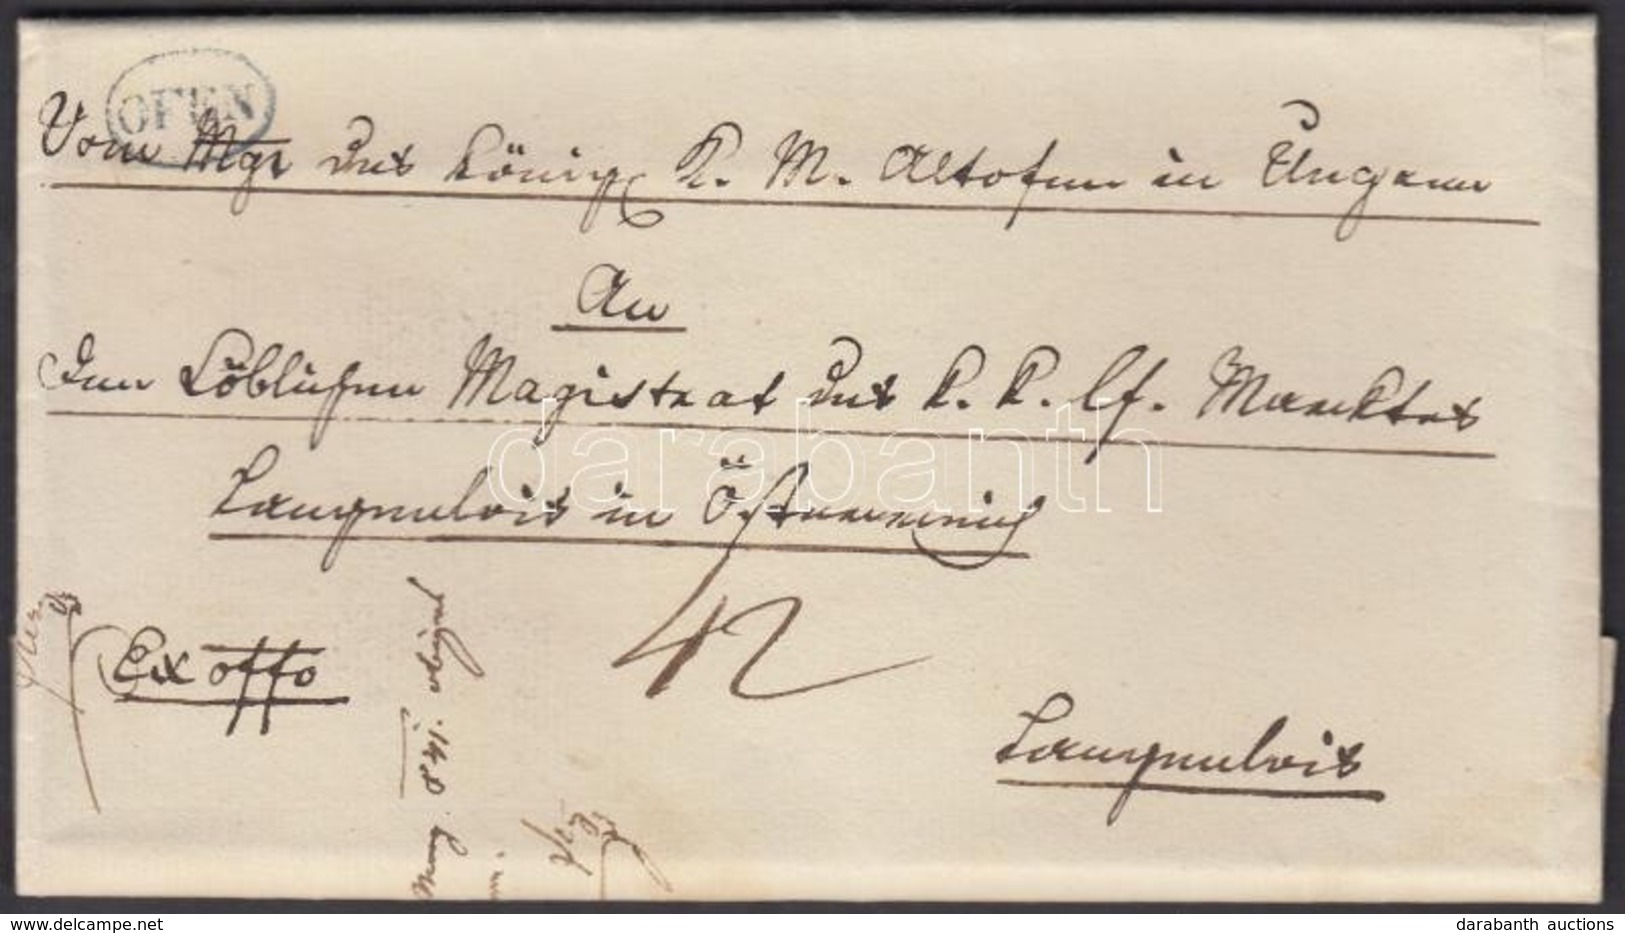 OFEN
Vom Mgr des königl K. M. Altofen in Ungarn
An
Den Löblichen Magistrat des K. K. lf. Marktes
Langenlois in Österreich
Ex offo
42
Langenlois
darabanth
www.delcampe.net
darabanth auctions